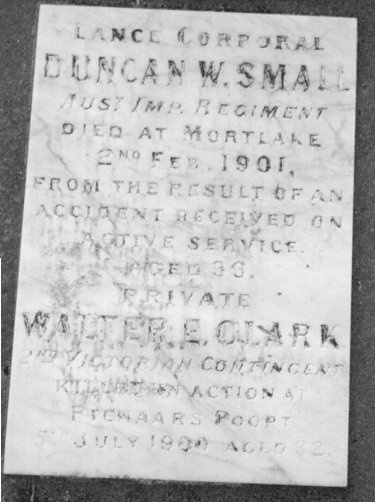 LANCE CORPORAL
DUNCAN W. SMALL
AUST IMP. REGIMENT
DIED AT MORTLAKE
2ND FEB. 1901,
FROM THE RESULT OF AN
ACCIDENT RECEIVED ON
ACTIVE SERVICE.
AGED 33.
PRIVATE
WALTER. E. CLARK
2ND VICTORIAN CONTINGENT
KILLED IN ACTION AT
PIENAARS POORT
5TH JULY 1900 AGED 22.